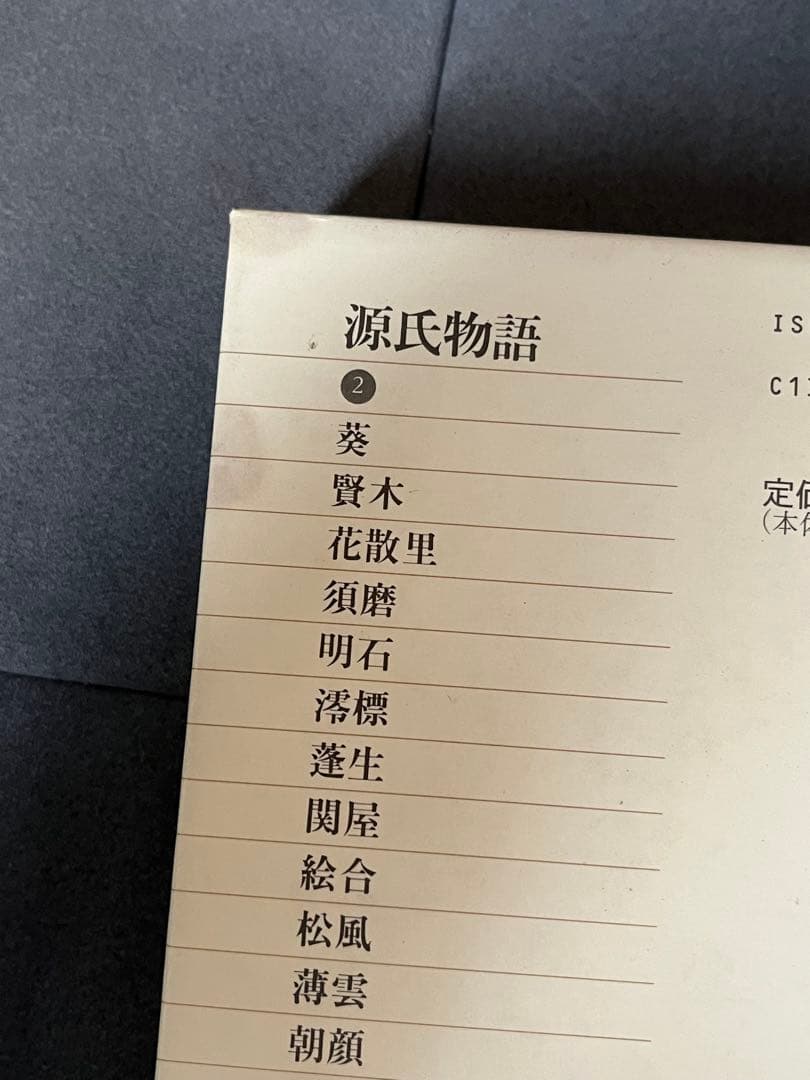 源氏物語
2
葵
賢木
花散里
須磨
明石
澪標
蓬生
関屋
絵合
松風
薄雲
朝顔
IS
C1
定価
(本体